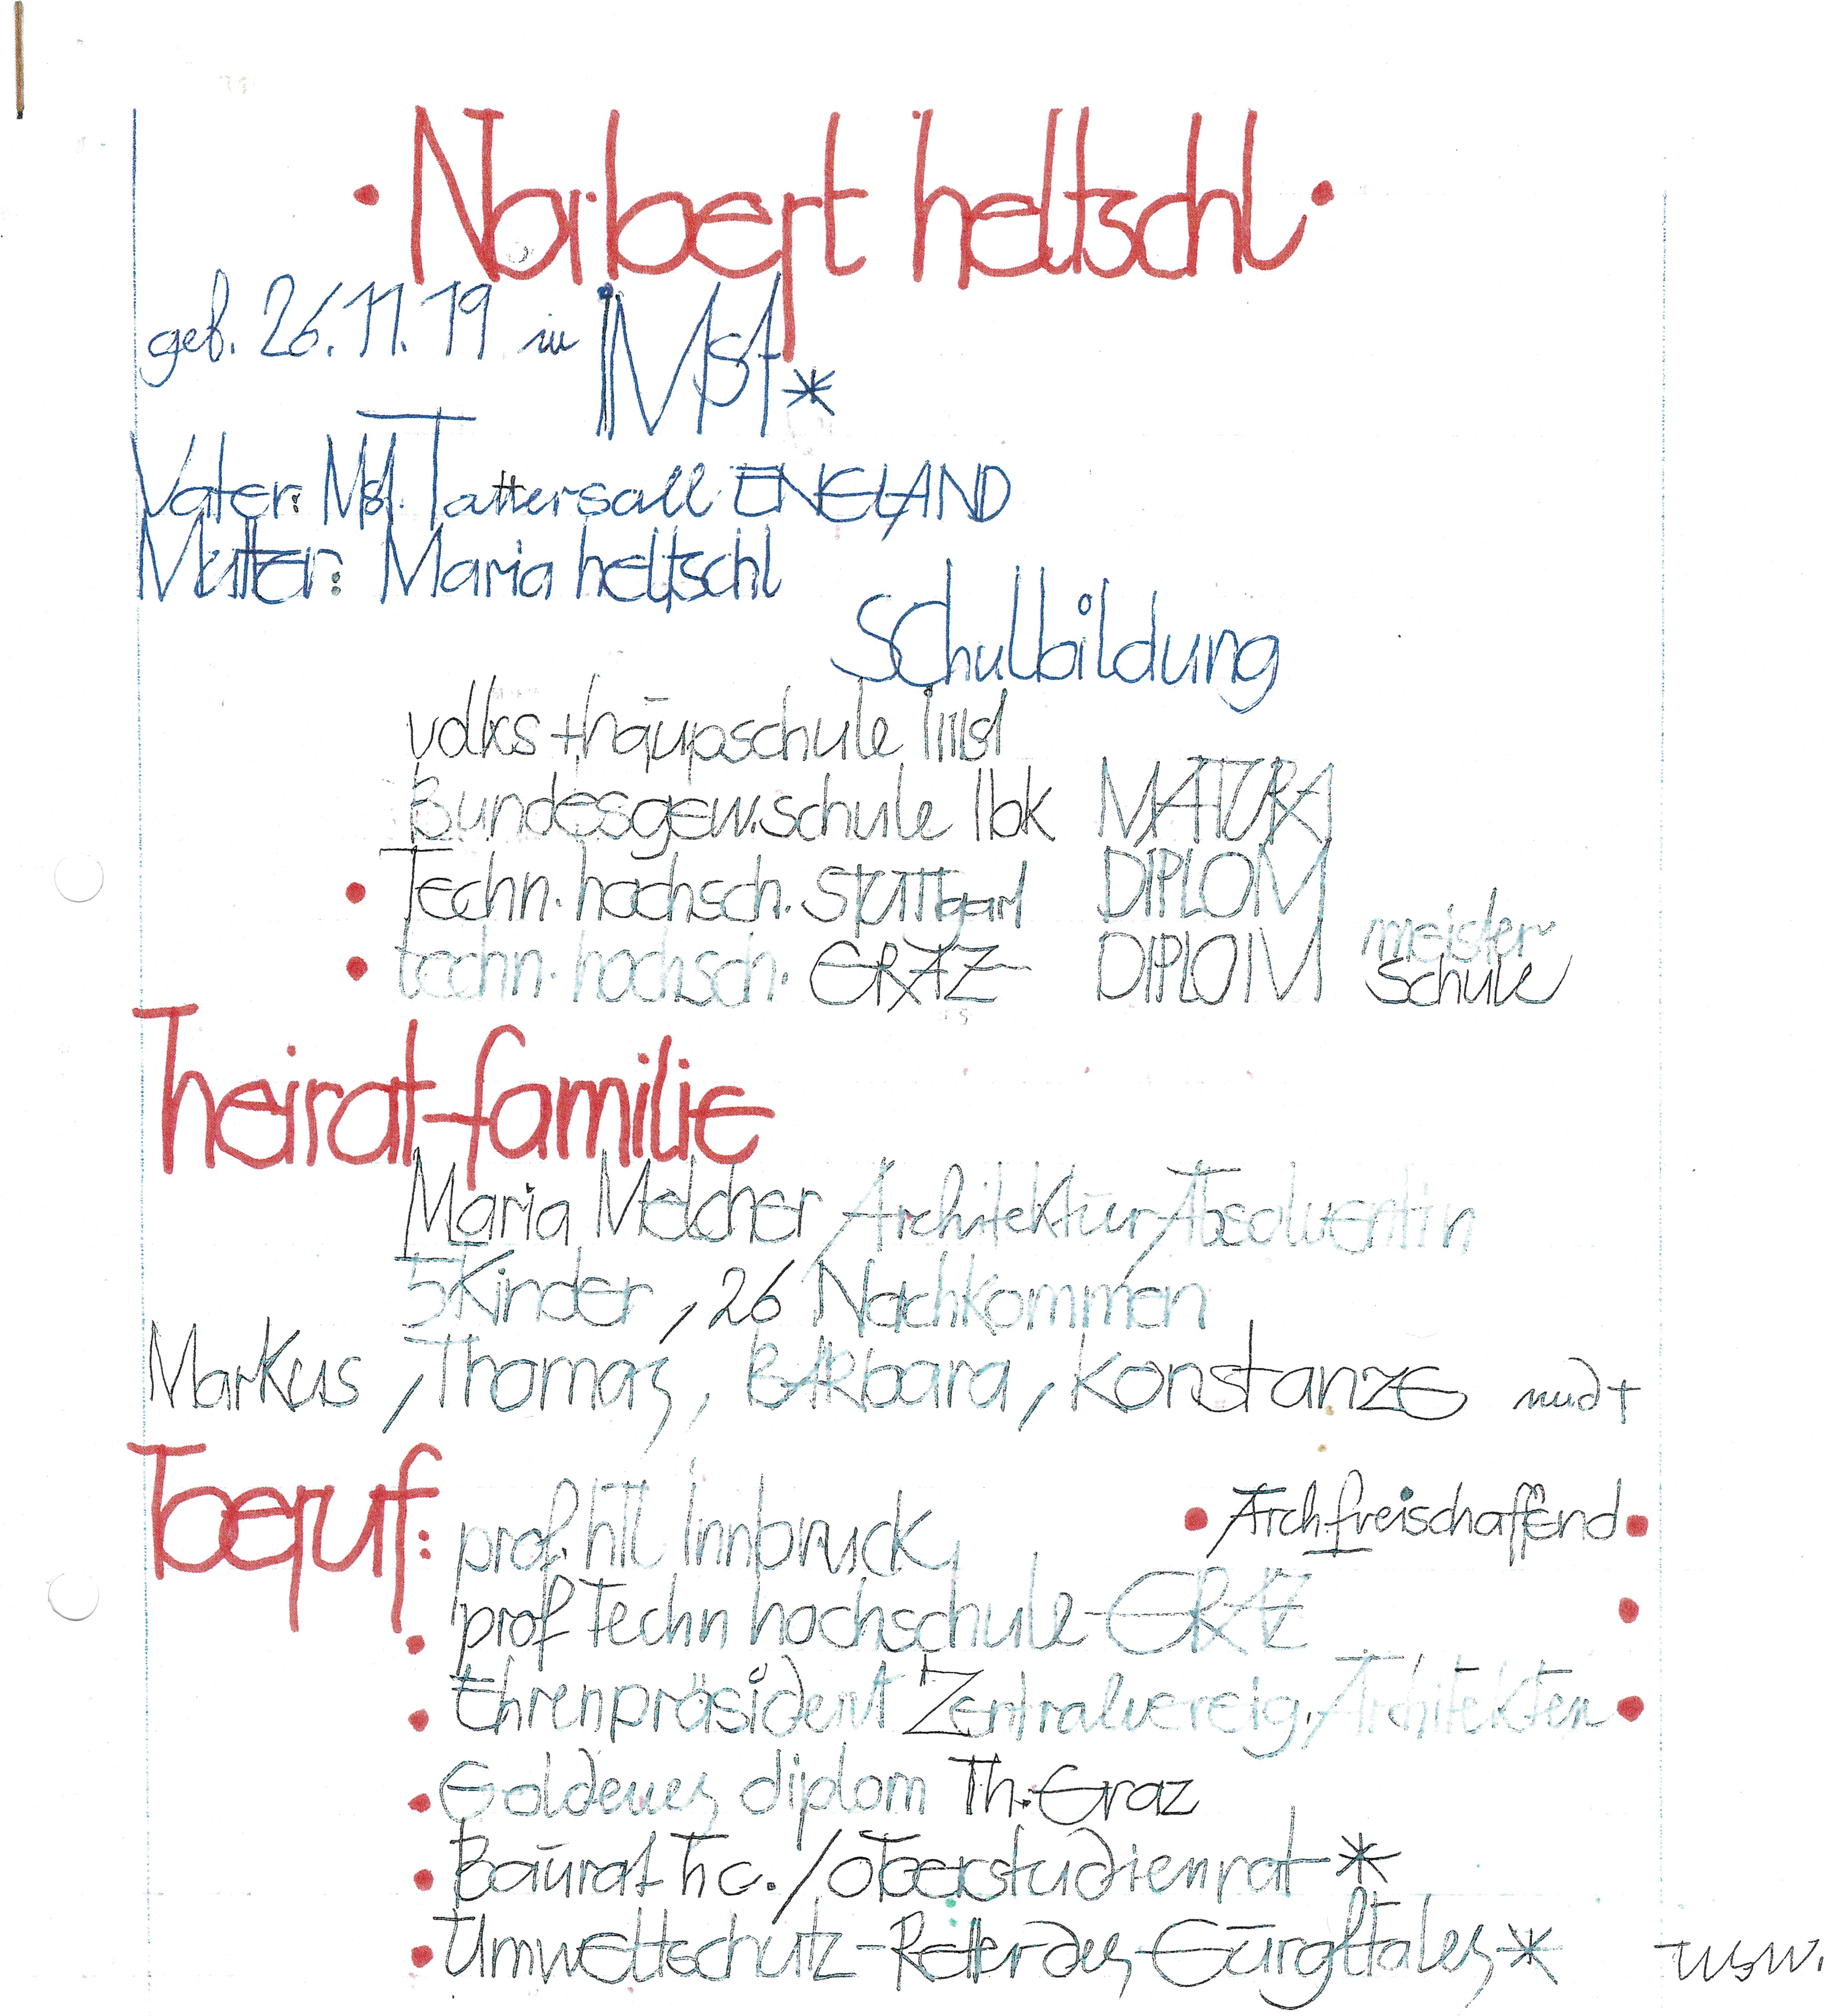 • Norbert heltschl •
geb. 26.11.19 in iMst*
Vater: Mst. Tattersall ENGLAND
Mutter: Maria heltschl
SChulbildung
volks + haupschule Imst
Bundesgew.schule Ibk MATURA
• Techn. hochsch. Stuttgart DIPLOM
• techn. hochsch. GRAZ DIPLOM meister schule
heirat-familie
Maria Melcher Architektur Absolventin
5 Kinder, 26 Nachkommen
Markus, Thomas, BARbara, Konstanze und +
beruf: prof. hTL Innbruck • Arch. freischaffend •
• prof Techn hochschule GRAZ •
• Ehrenpräsident Zentralvereig. Architekten •
• Goldenes diplom Th. Graz
• Baurat h c. / oberstudienrat *
• Umweltschutz - Retter des Gurgltales * usw.